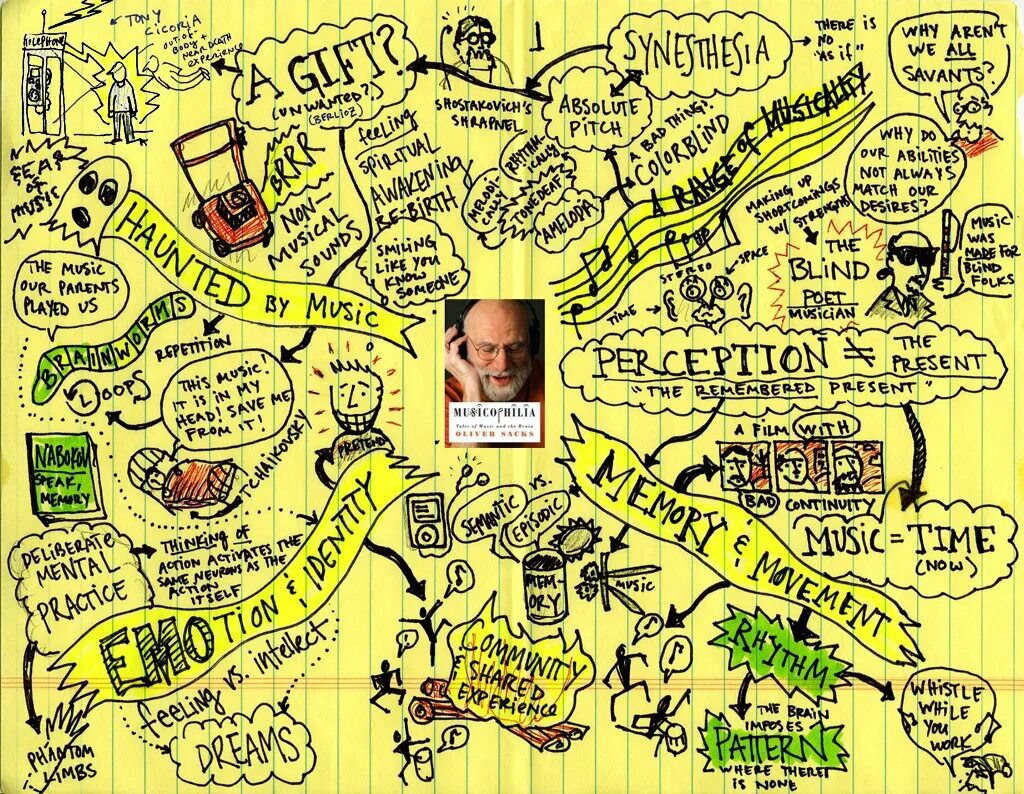 TELEPHONE
TONY
CICORIA
OUT OF
BODY +
NEAR DEATH
EXPERIENCE
A GIFT?
(UNWANTED?)
(BERLIOZ)
SHOSTAKOVICH'S
SHRAPNEL
1
SYNESTHESIA
THERE IS
NO
"AS IF"
ABSOLUTE
PITCH
WHY AREN'T
WE ALL
SAVANTS?
WHY DO
OUR ABILITIES
NOT ALWAYS
MATCH OUR
DESIRES?
A BAD THING?
COLORBLIND
A RANGE OF MUSICALITY
MELODI-
CALLY
RHYTHMI-
CALLY
TONEDEAF
AMELODIA
SEAS
OF
MUSIC
HAUNTED BY MUSIC
BRRR
NON-
MUSICAL
SOUNDS
feeling
SPIRITUAL
AWAKENING
RE-BIRTH
SMILING
LIKE YOU
KNOW
SOMEONE
MAKING UP
SHORTCOMINGS
W/ STRENGTHS
THE
BLIND
POET
MUSICIAN
MUSIC
WAS
MADE FOR
BLIND
FOLKS
STEREO
SPACE
TIME
THE MUSIC
OUR PARENTS
PLAYED US
BRAINWORMS
REPETITION
LOOPS
THIS MUSIC!
IT IS IN MY
HEAD! SAVE ME
FROM IT!
TCHAIKOVSKY
PRETEND
MUSICOPHILIA
Tales of Music and the Brain
OLIVER SACKS
PERCEPTION ≠ THE
PRESENT
"THE REMEMBERED PRESENT"
NABOKOV
SPEAK,
MEMORY
A FILM WITH
BAD CONTINUITY
MUSIC = TIME
(NOW)
DELIBERATE
MENTAL
PRACTICE
THINKING OF
ACTION ACTIVATES THE
SAME NEURONS AS THE
ACTION
ITSELF
EMOTION & IDENTITY
feeling vs. intellect
DREAMS
PHANTOM
LIMBS
SEMANTIC
VS.
EPISODIC
MEM-
ORY
MUSIC
MEMORY & MOVEMENT
COMMUNITY
& SHARED
EXPERIENCE
RHYTHM
THE BRAIN
IMPOSES
PATTERN
WHERE THERE
IS NONE
WHISTLE
WHILE
YOU
WORK